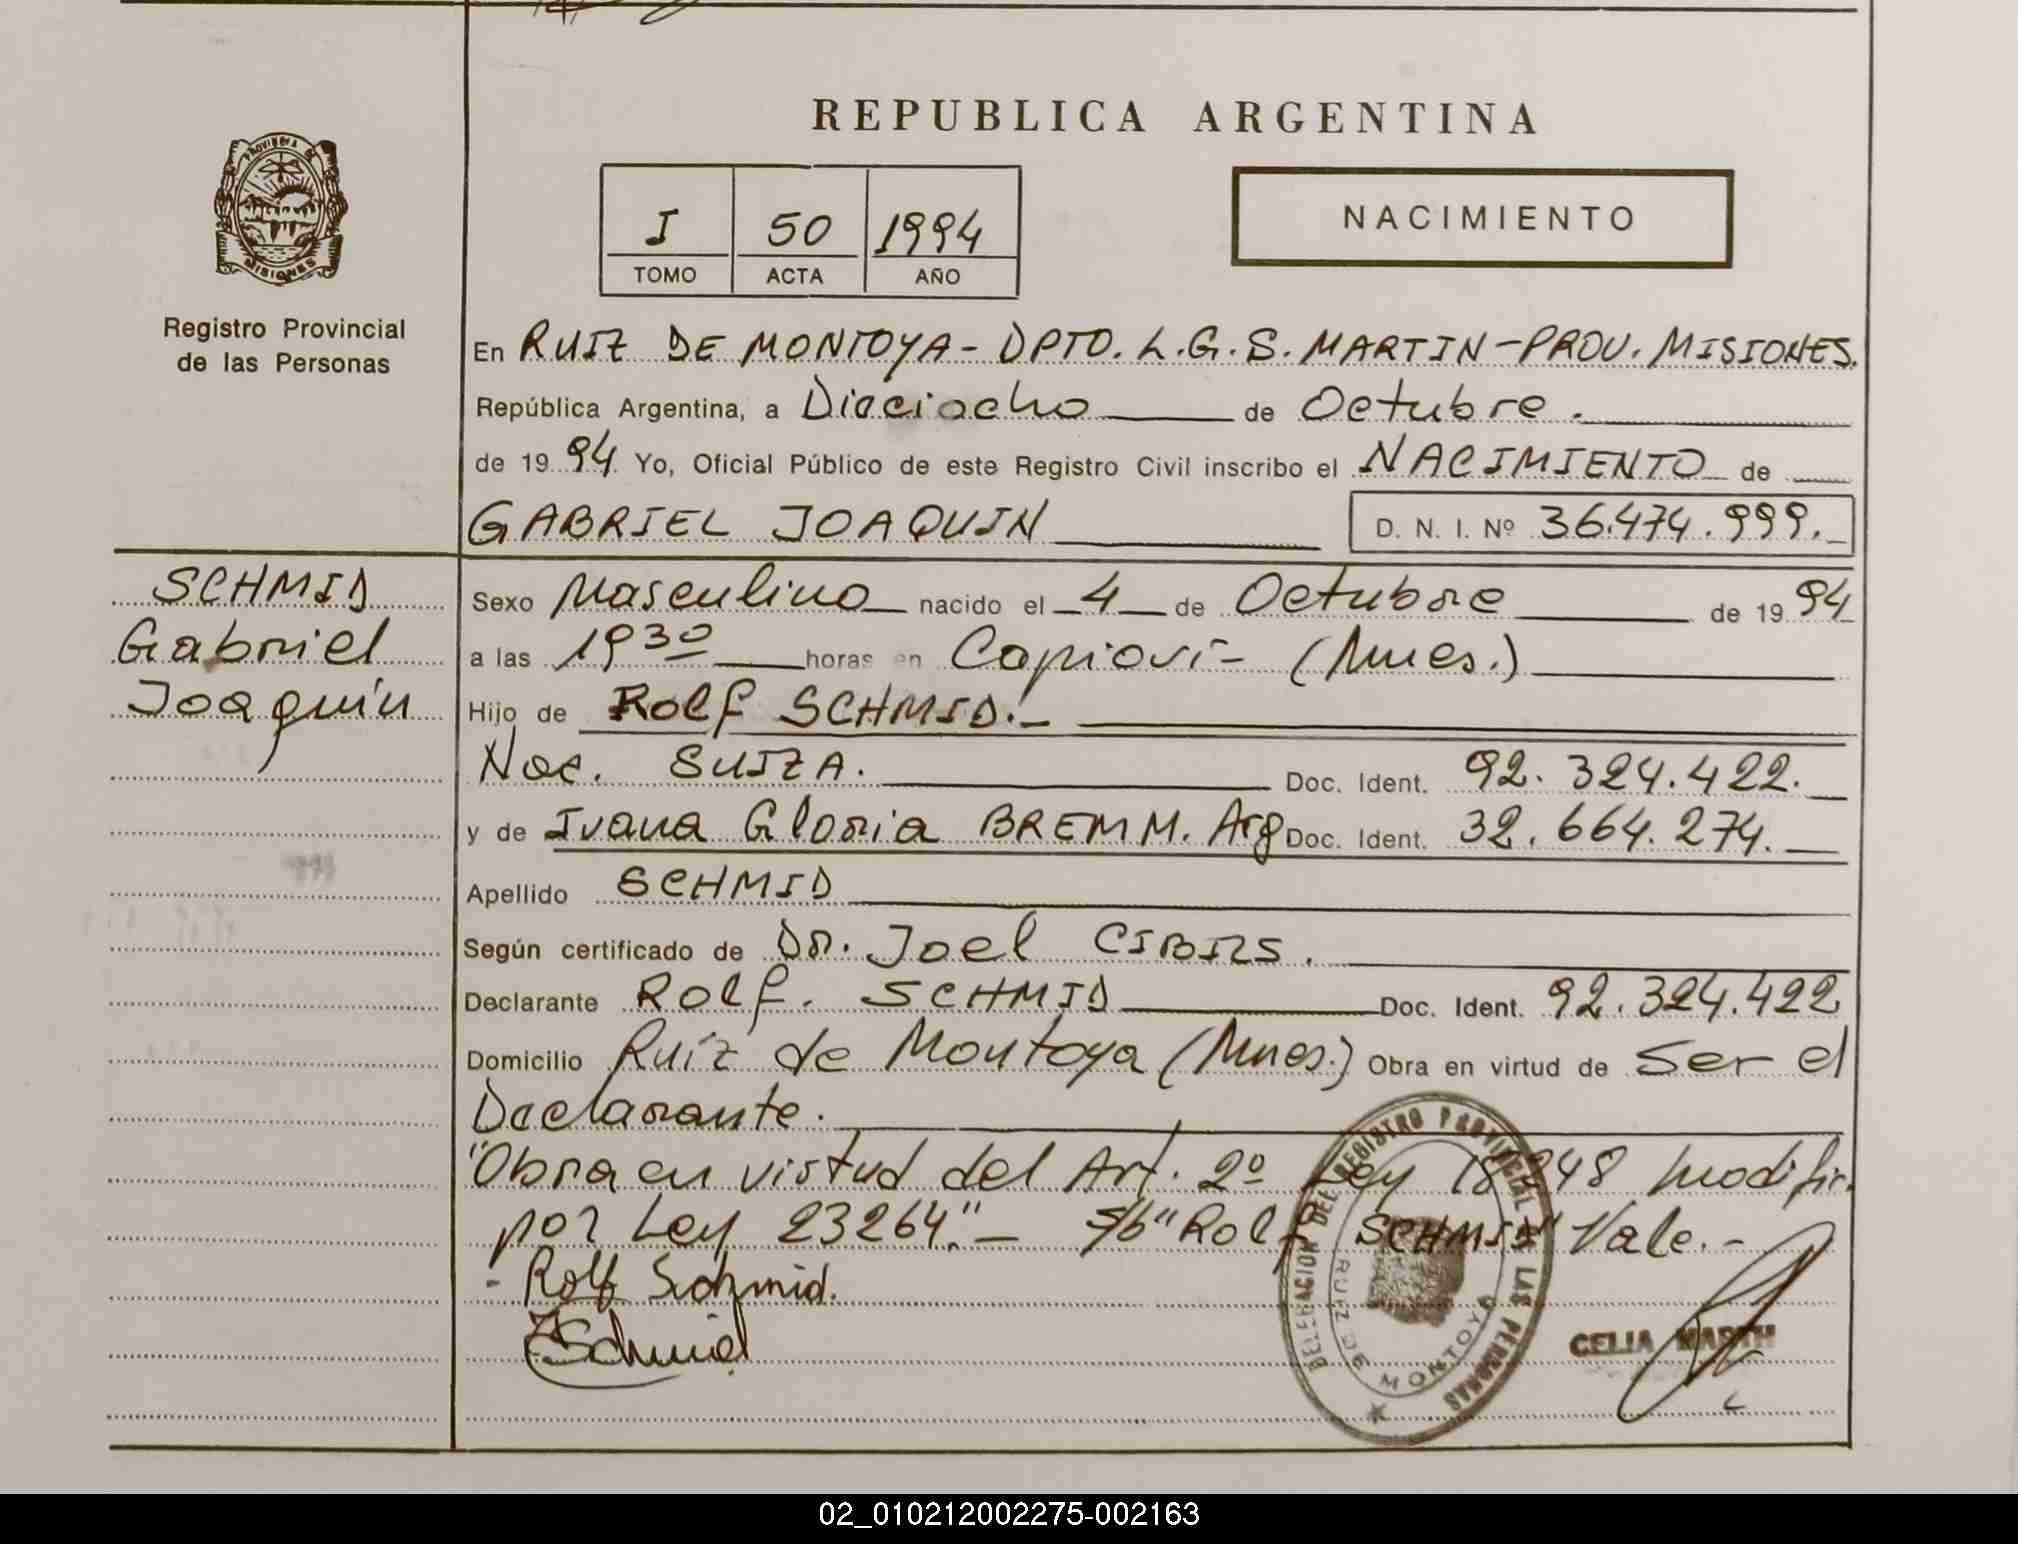 REPUBLICA ARGENTINA
PROVINCIA DE
MISIONES
Registro Provincial
de las Personas
I 50 1994
TOMO ACTA AÑO
NACIMIENTO
En RUIZ DE MONTOYA - DPTO. L.G.S. MARTIN - PROV. MISIONES.
República Argentina, a Dieciocho de Octubre.
de 19 94. Yo, Oficial Público de este Registro Civil inscribo el NACIMIENTO de
GABRIEL JOAQUIN D. N. I. Nº 36.474.999.
SCHMID
Gabriel
Joaquín
Sexo Masculino nacido el 4 de Octubre de 19 94
a las 19 30 horas en Capioví - (Mnes.)
Hijo de Rolf SCHMID.-
Nac. SUIZA. Doc. Ident. 92.324.422.
y de Ivana Gloria BREMM. Arg Doc. Ident. 32.664.274.
Apellido SCHMID
Según certificado de Dr. Joel CIBILS.
Declarante Rolf. SCHMID Doc. Ident. 92.324.422
Domicilio Ruíz de Montoya (Mnes.) Obra en virtud de Ser el
Declarante.
"Obra en virtud del Art. 2º Ley 18248 modific.
por Ley 23264".- S/b "Rolf SCHMID" Vale.-
- Rolf Schmid.
Schmid
DELEGACION DEL REGISTRO PROVINCIAL DE LAS PERSONAS
RUIZ DE MONTOYA
CELIA
02_010212002275-002163